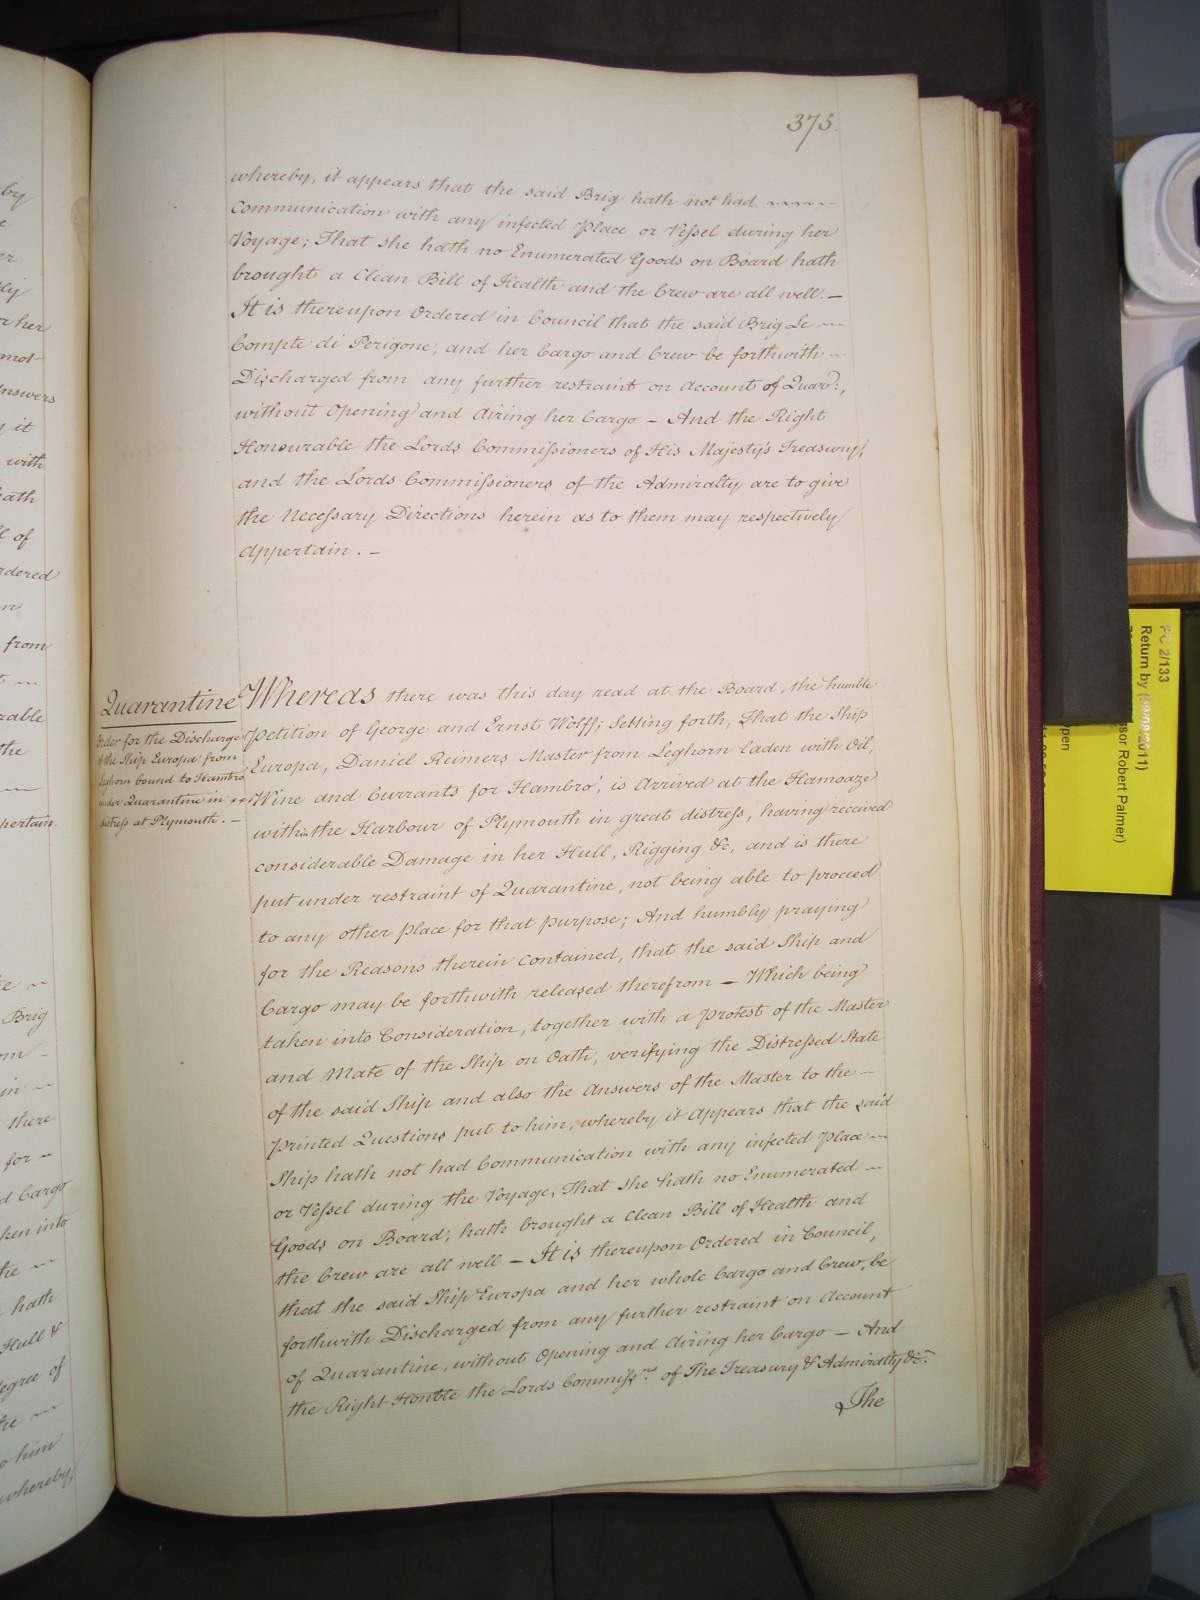 375.
whereby, it appears that the said Brig hath not had
Communication with any infected Place or Vessel during her
Voyage; That she hath no Enumerated Goods on Board hath
brought a Clean Bill of Health and the Crew are all well. —
It is thereupon Ordered in Council that the said Brig Le
Compte di Perigone, and her Cargo and Crew be forthwith
Discharged from any further restraint on Account of Quarn:,
without Opening and Airing her Cargo — And the Right
Honourable the Lords Commissioners of His Majesty's Treasury,
and the Lords Commissioners of the Admiralty are to give
the Necessary Directions herein as to them may respectively
Appertain. —
Quarantine
Order for the Discharge
of the Ship Europa from
Leghorn bound to Hambro
under Quarantine in
distress at Plymouth. —
Whereas there was this day read at the Board, the humble
Petition of George and Ernst Wolff; Setting forth, That the Ship
Europa, Daniel Reimers Master from Leghorn laden with Oil,
Wine and Currants for Hambro', is Arrived at the Hamoaze
within the Harbour of Plymouth in great distress, having received
considerable Damage in her Hull, Rigging &c, and is there
put under restraint of Quarantine, not being able to proceed
to any other place for that purpose; And humbly praying
for the Reasons therein contained, that the said Ship and
Cargo may be forthwith released therefrom — Which being
taken into Consideration, together with a Protest of the Master
and Mate of the Ship on Oath, verifying the Distressed State
of the said Ship and also the Answers of the Master to the
Printed Questions put to him, whereby it Appears that the said
Ship hath not had Communication with any infected Place
or Vessel during the Voyage, That she hath no Enumerated
Goods on Board, hath brought a Clean Bill of Health and
the Crew are all well — It is thereupon Ordered in Council,
that the said Ship Europa and her whole Cargo and Crew, be
forthwith Discharged from any further restraint on Account
of Quarantine, without Opening and Airing her Cargo — And
the Right Honble the Lords Commissrs of The Treasury & Admiralty &c.
The
by
her
with
hath
of
from
the
Brig
there
for
Cargo
into
hath
Hull &
of
him
whereby
PC 2/133
Return by (09/08/2011)
Robert Palmer)